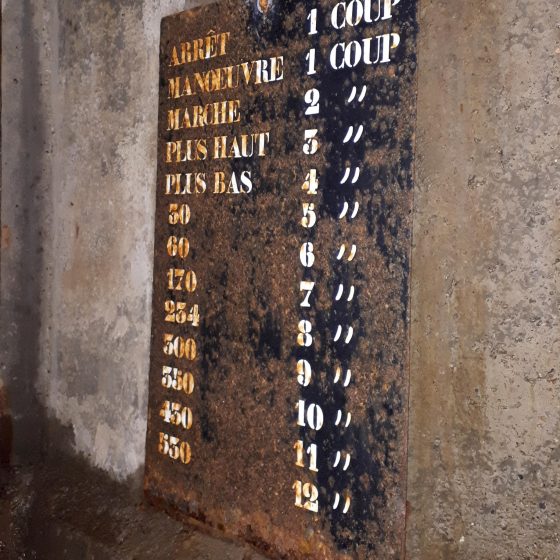 ARRÊT 1 COUP
MANŒUVRE 1 COUP
MARCHE 2 〃
PLUS HAUT 3 〃
PLUS BAS 4 〃
50 5 〃
60 6 〃
170 7 〃
234 8 〃
300 9 〃
350 10 〃
450 11 〃
550 12 〃